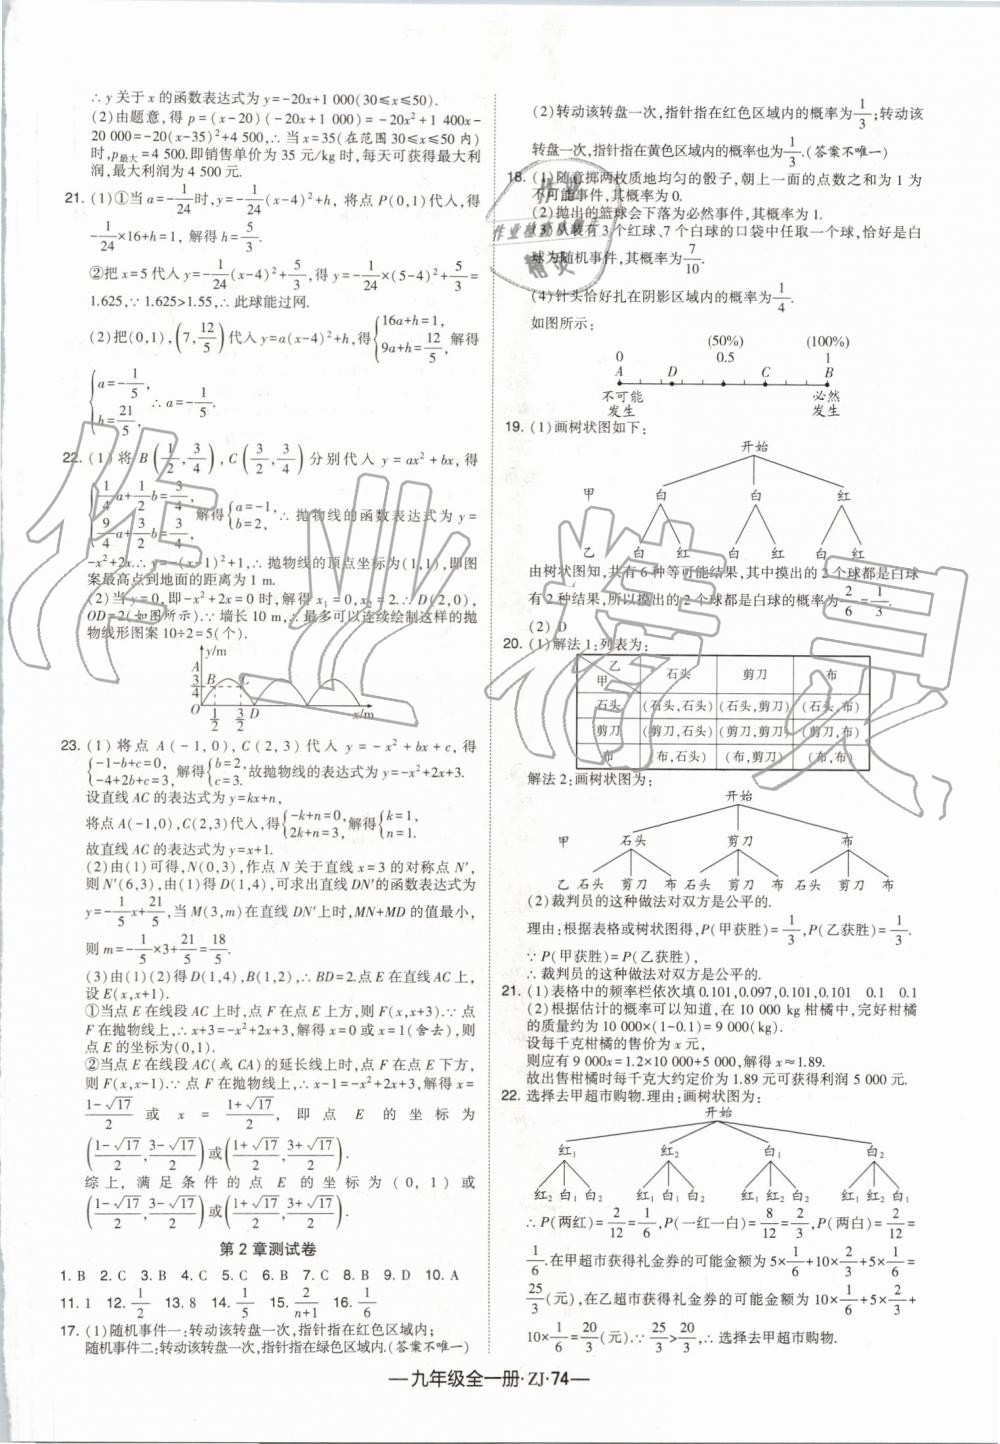 ∴y关于x的函数表达式为y=-20x+1 000(30≤x≤50).
(2)由题意,得p=(x-20)(-20x+1 000)=-20x²+1 400x-
20 000=-20(x-35)²+4 500,∴当x=35(在范围30≤x≤50内)
时,p最大=4 500.即销售单价为35元/kg时,每天可获得最大利
润,最大利润为4 500元.
21. (1)①当a=-1/24时,y=-1/24(x-4)²+h,将点P(0,1)代入,得
-1/24×16+h=1,解得h=5/3.
②把x=5代入y=-1/24(x-4)²+5/3,得y=-1/24×(5-4)²+5/3=
1.625,∵1.625>1.55,∴此球能过网.
(2)把(0,1),(7,12/5)代入y=a(x-4)²+h,得{16a+h=1, 9a+h=12/5,解得
{a=-1/5, h=21/5,∴a=-1/5.
22. (1)将B(1/2,3/4),C(3/2,3/4)分别代入y=ax²+bx,得
{1/4a+1/2b=3/4, 9/4a+3/2b=3/4,解得{a=-1, b=2,∴抛物线的函数表达式为y=
-x²+2x.∴y=-(x-1)²+1,∴抛物线的顶点坐标为(1,1),即图
案最高点到地面的距离为1 m.
(2)当y=0,即-x²+2x=0时,解得x₁=0,x₂=2.∴D(2,0),
OD=2(如图所示).∵墙长10 m,∴最多可以连续绘制这样的抛
物线形图案10÷2=5(个).
y/m
A
3/4 B C
O 1/2 3/2 D x/m
23. (1)将点A(-1,0),C(2,3)代入y=-x²+bx+c,得
{-1-b+c=0, -4+2b+c=3,解得{b=2, c=3.故抛物线的表达式为y=-x²+2x+3.
设直线AC的表达式为y=kx+n,
将点A(-1,0),C(2,3)代入,得{-k+n=0, 2k+n=3,解得{k=1, n=1.
故直线AC的表达式为y=x+1.
(2)由(1)可得,N(0,3),作点N关于直线x=3的对称点N′,
则N′(6,3),由(1)得D(1,4),可求出直线DN′的函数表达式为
y=-1/5x+21/5,当M(3,m)在直线DN′上时,MN+MD的值最小,
则m=-1/5×3+21/5=18/5.
(3)由(1)(2)得D(1,4),B(1,2),∴BD=2.点E在直线AC上,
设E(x,x+1).
①当点E在线段AC上时,点F在点E上方,则F(x,x+3).∵点
F在抛物线上,∴x+3=-x²+2x+3,解得x=0或x=1(舍去),则
点E的坐标为(0,1).
②当点E在线段AC(或CA)的延长线上时,点F在点E下方,
则F(x,x-1).∵点F在抛物线上,∴x-1=-x²+2x+3,解得x=
1-√17/2或x=1+√17/2,即点E的坐标为
(1-√17/2,3-√17/2)或(1+√17/2,3+√17/2).
综上,满足条件的点E的坐标为(0,1)或
(1-√17/2,3-√17/2)或(1+√17/2,3+√17/2).
第2章测试卷
1. B 2. C 3. B 4. C 5. C 6. B 7. C 8. B 9. D 10. A
11. 1 12. 1/2 13. 8 14. 1/5 15. 2/n+1 16. 1/6
17. (1)随机事件一:转动该转盘一次,指针指在红色区域内;
随机事件二:转动该转盘一次,指针指在绿色区域内.(答案不唯一)
(2)转动该转盘一次,指针指在红色区域内的概率为1/3;转动该
转盘一次,指针指在黄色区域内的概率也为1/3.(答案不唯一)
18. (1)随意掷两枚质地均匀的骰子,朝上一面的点数之和为1为
不可能事件,其概率为0.
(2)抛出的篮球会下落为必然事件,其概率为1.
(3)从装有3个红球、7个白球的口袋中任取一个球,恰好是白
球为随机事件,其概率为7/10.
(4)针头恰好扎在阴影区域内的概率为1/4.
如图所示:
(50%) (100%)
0 0.5 1
A D C B
不可能 必然
发生 发生
19. (1)画树状图如下:
开始
甲 白 白 红
乙 白 红 白 红 白 白
由树状图知,共有6种等可能结果,其中摸出的2个球都是白球
有2种结果,所以摸出的2个球都是白球的概率为2/6=1/3.
(2) D
20. (1)解法1:列表为:
乙 甲 石头 剪刀 布
石头 (石头,石头) (石头,剪刀) (石头,布)
剪刀 (剪刀,石头) (剪刀,剪刀) (剪刀,布)
布 (布,石头) (布,剪刀) (布,布)
解法2:画树状图为:
开始
甲 石头 剪刀 布
乙 石头 剪刀 布 石头 剪刀 布 石头 剪刀 布
(2)裁判员的这种做法对双方是公平的.
理由:根据表格或树状图得,P(甲获胜)=1/3,P(乙获胜)=1/3.
∵P(甲获胜)=P(乙获胜),
∴裁判员的这种做法对双方是公平的.
21. (1)表格中的频率栏依次填0.101,0.097,0.101,0.101 0.1 0.1
(2)根据估计的概率可以知道,在10 000 kg柑橘中,完好柑橘
的质量约为10 000×(1-0.1)=9 000(kg).
设每千克柑橘的售价为x元,
则应有9 000x=1.2×10 000+5 000,解得x≈1.89.
故出售柑橘时每千克大约定价为1.89元可获得利润5 000元.
22. 选择去甲超市购物.理由:画树状图为:
开始
红₁ 红₂ 白₁ 白₂
红₂ 白₁ 白₂ 红₁ 白₁ 白₂ 红₁ 红₂ 白₂ 红₁ 红₂ 白₁
∴P(两红)=2/12=1/6,P(一红一白)=8/12=2/3,P(两白)=2/12=
1/6.在甲超市获得礼金券的可能金额为5×1/6+10×2/3+5×1/6=
25/3(元),在乙超市获得礼金券的可能金额为10×1/6+5×2/3+
10×1/6=20/3(元).∵25/3>20/3,∴选择去甲超市购物.
—九年级全一册·ZJ·74—
作业精灵
作业
作业检查好帮手
精灵